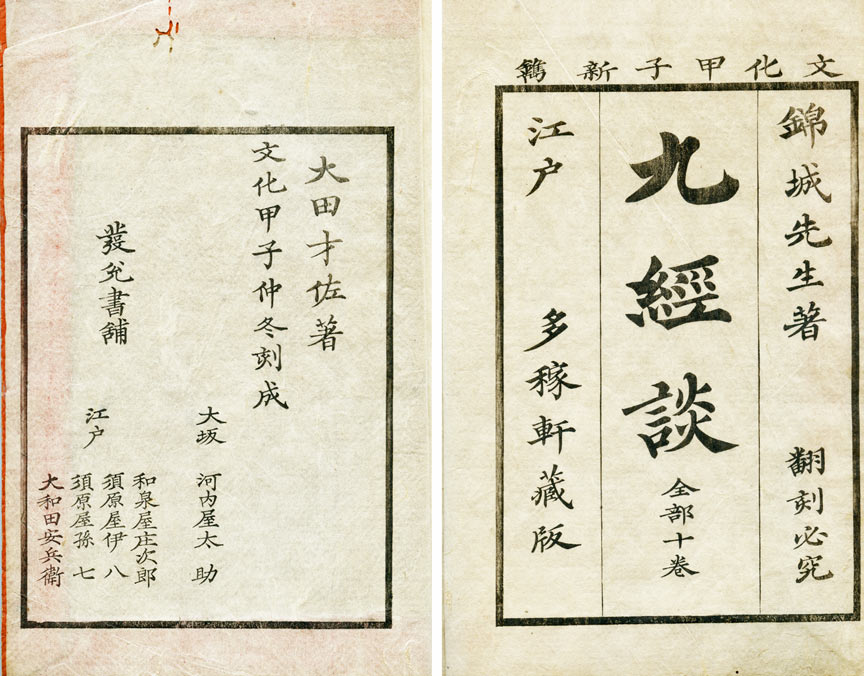 文化甲子新鐫
錦城先生著 翻刻必究
九經談 全部十卷
江戸 多稼軒藏版
大田才佐著
文化甲子仲冬刻成
發兌書舗
大坂 河内屋太助
江戸
和泉屋庄次郎
須原屋伊八
須原屋孫七
大和田安兵衞